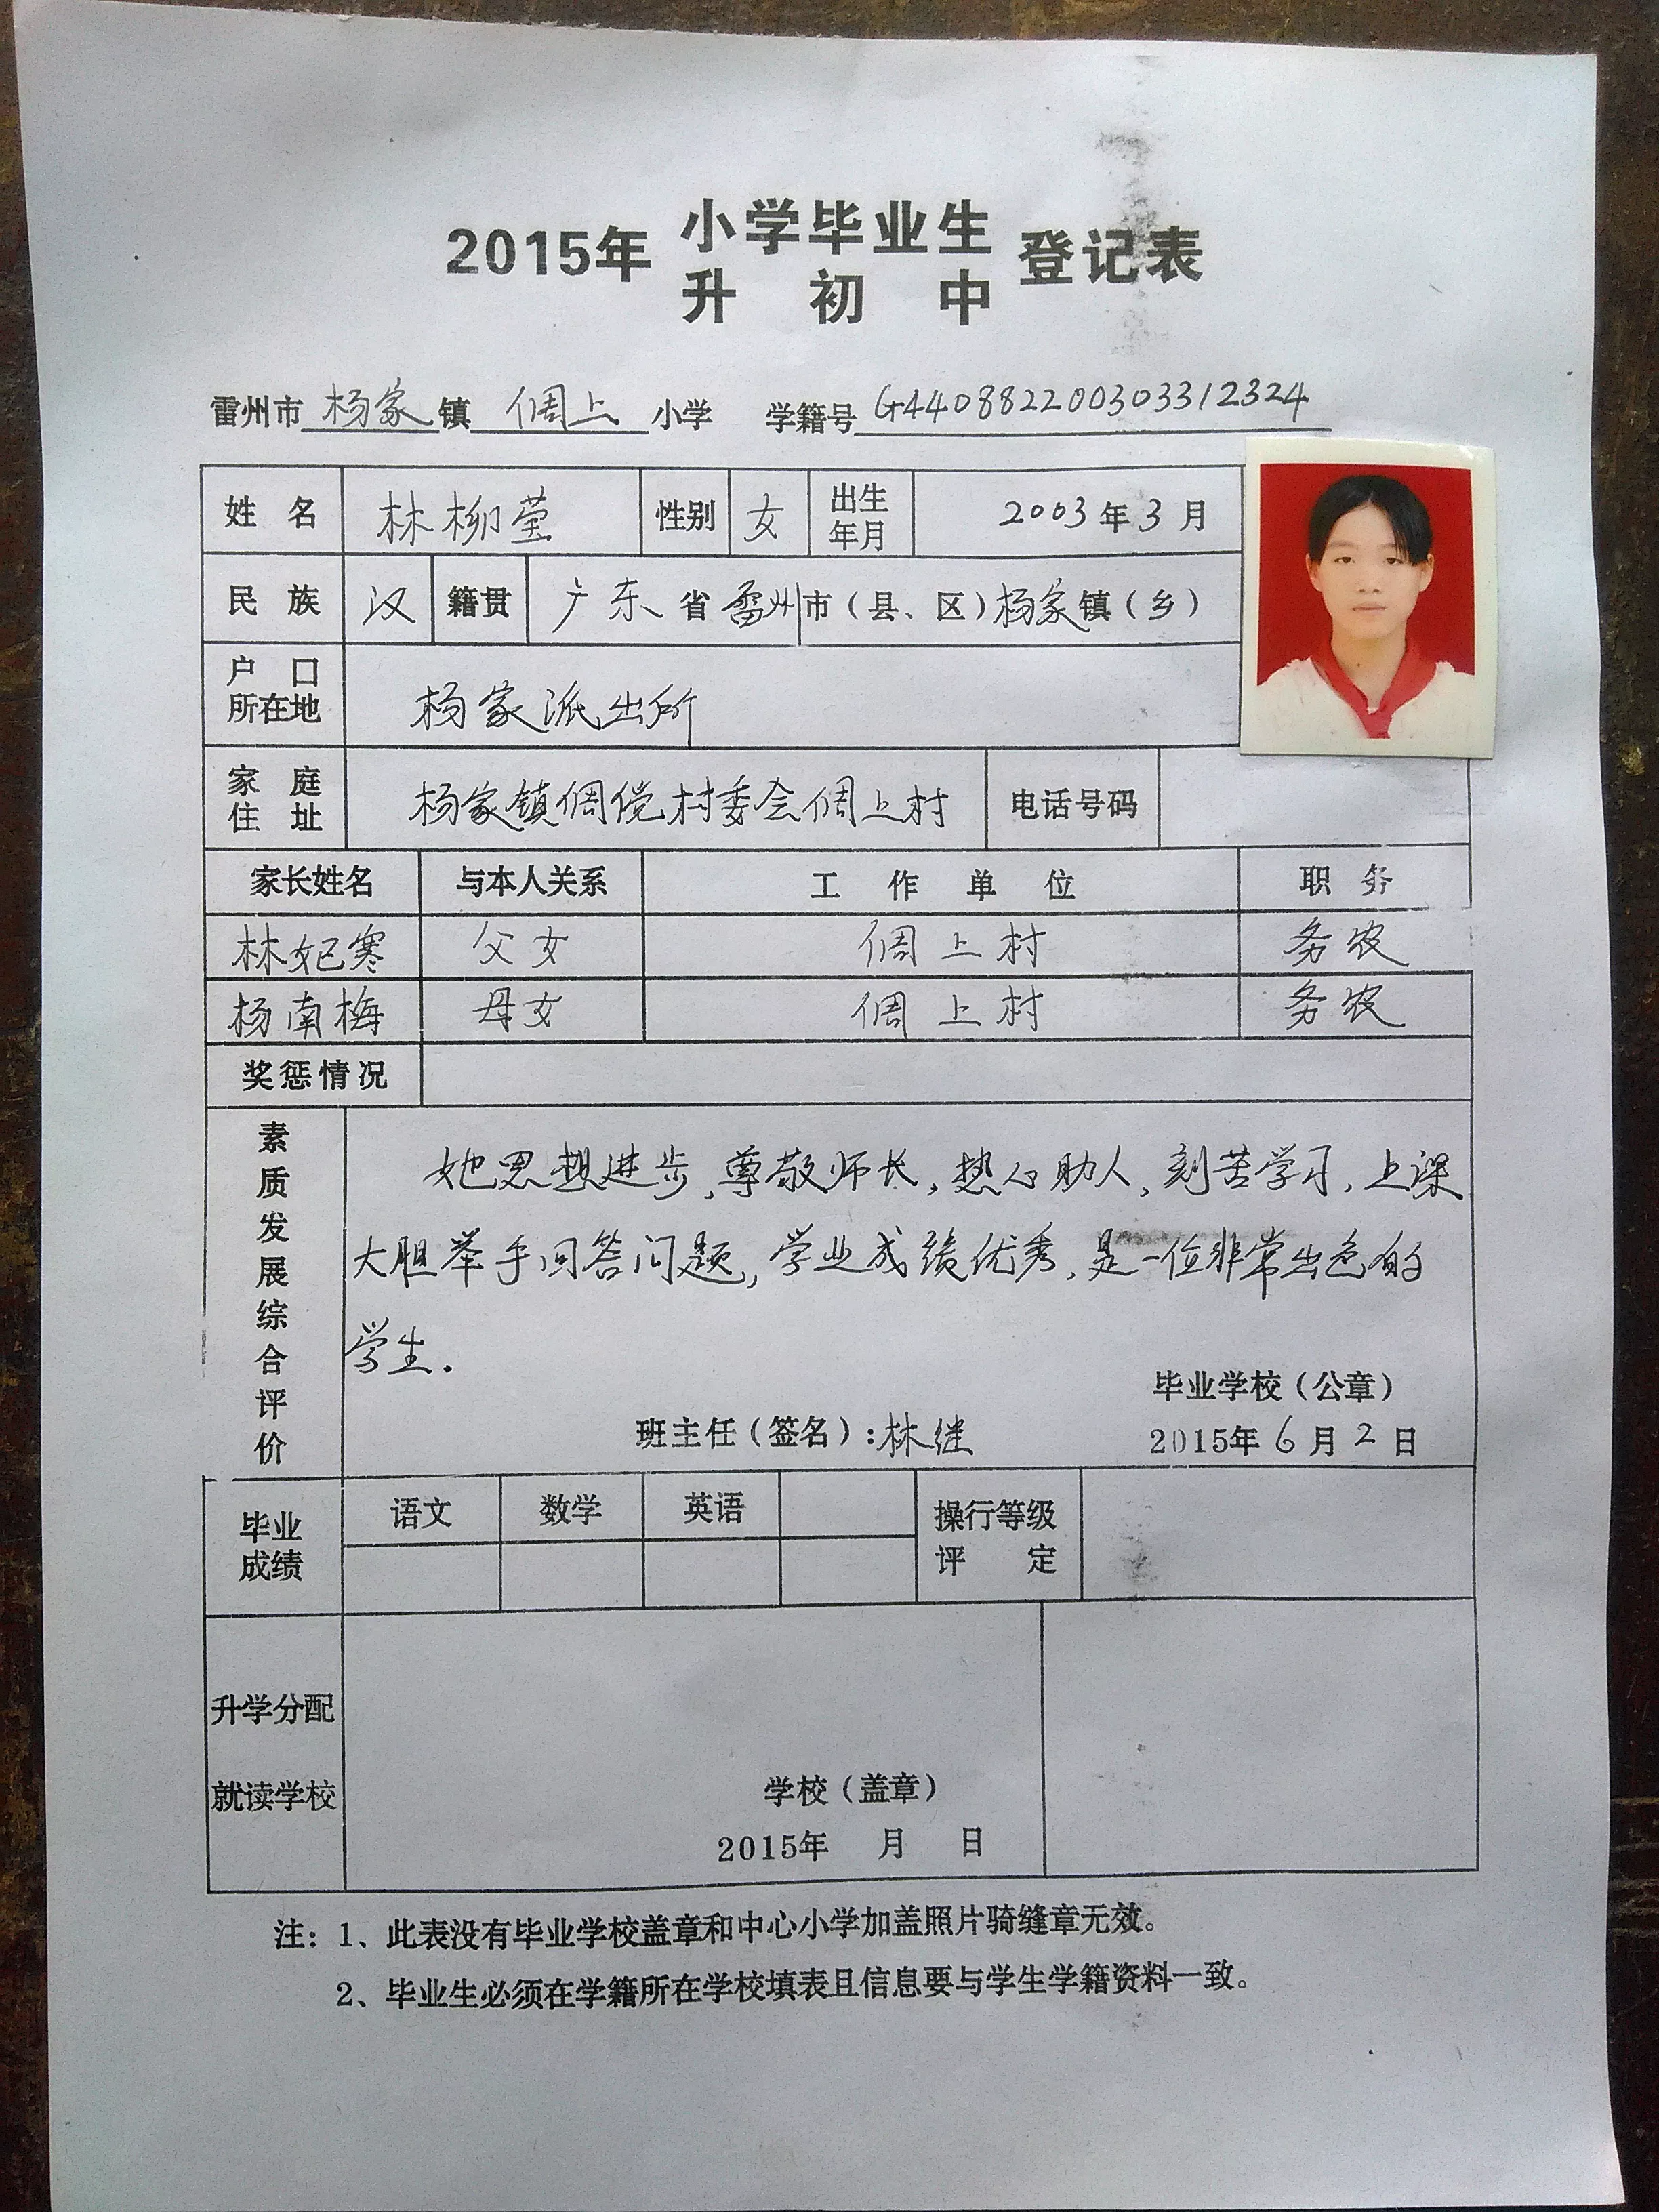 2015年 小学毕业生 登记表
升初中
雷州市 杨家 镇 倜上 小学 学籍号 G440882200303312324
姓名 林柳莹 性别 女 出生年月 2003年3月
民族 汉 籍贯 广东省雷州市（县、区）杨家镇（乡）
户口所在地 杨家派出所
家庭住址 杨家镇倜傥村委会倜上村 电话号码
家长姓名 与本人关系 工作单位 职务
林妃寒 父女 倜上村 务农
杨南梅 母女 倜上村 务农
奖惩情况
素质发展综合评价
她思想进步，尊敬师长，热心助人，刻苦学习，上课
大胆举手回答问题，学业成绩优秀，是一位非常出色的
学生.
毕业学校（公章）
班主任（签名）：林继 2015年6月2日
毕业成绩 语文 数学 英语 操行等级评定
升学分配
就读学校
学校（盖章）
2015年 月 日
注：1、此表没有毕业学校盖章和中心小学加盖照片骑缝章无效。
2、毕业生必须在学籍所在学校填表且信息要与学生学籍资料一致。